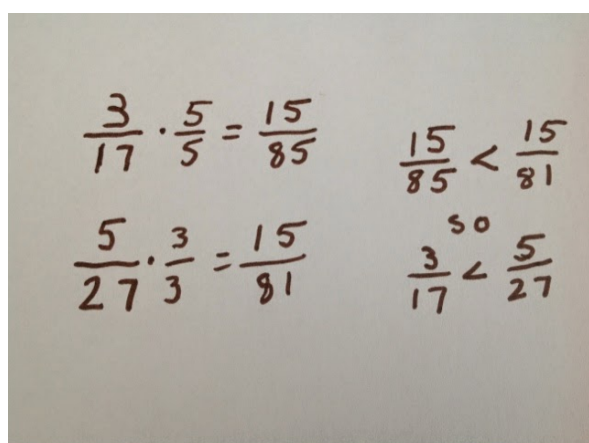 3/17 · 5/5 = 15/85
5/27 · 3/3 = 15/81
15/85 < 15/81
so
3/17 < 5/27